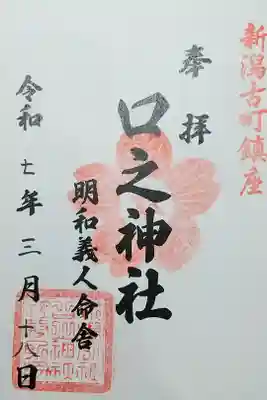 新潟古町鎮座
奉拝
口之神社
明和義人命舎
令和七年三月十八日